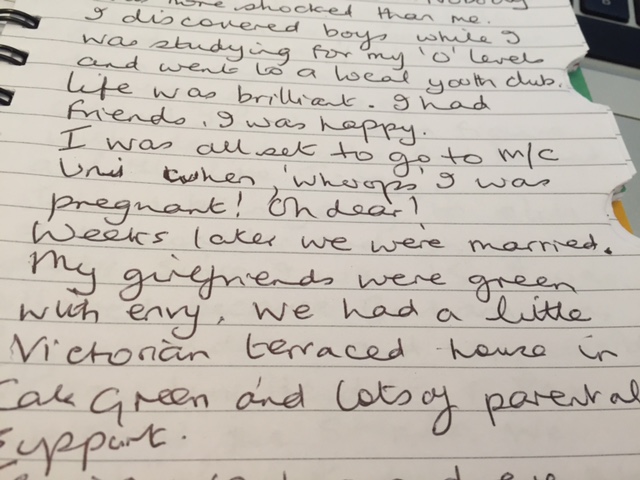 more shocked than me.
I discovered boys while I
was studying for my 'O' levels
and went to a local youth club.
Life was brilliant. I had
friends. I was happy.
I was all set to go to M/C
Uni when, 'whoops' I was
pregnant! Oh dear!
Weeks later we were married.
My girlfriends were green
with envy. We had a little
Victorian terraced house in
Cale Green and lots of parental
support.